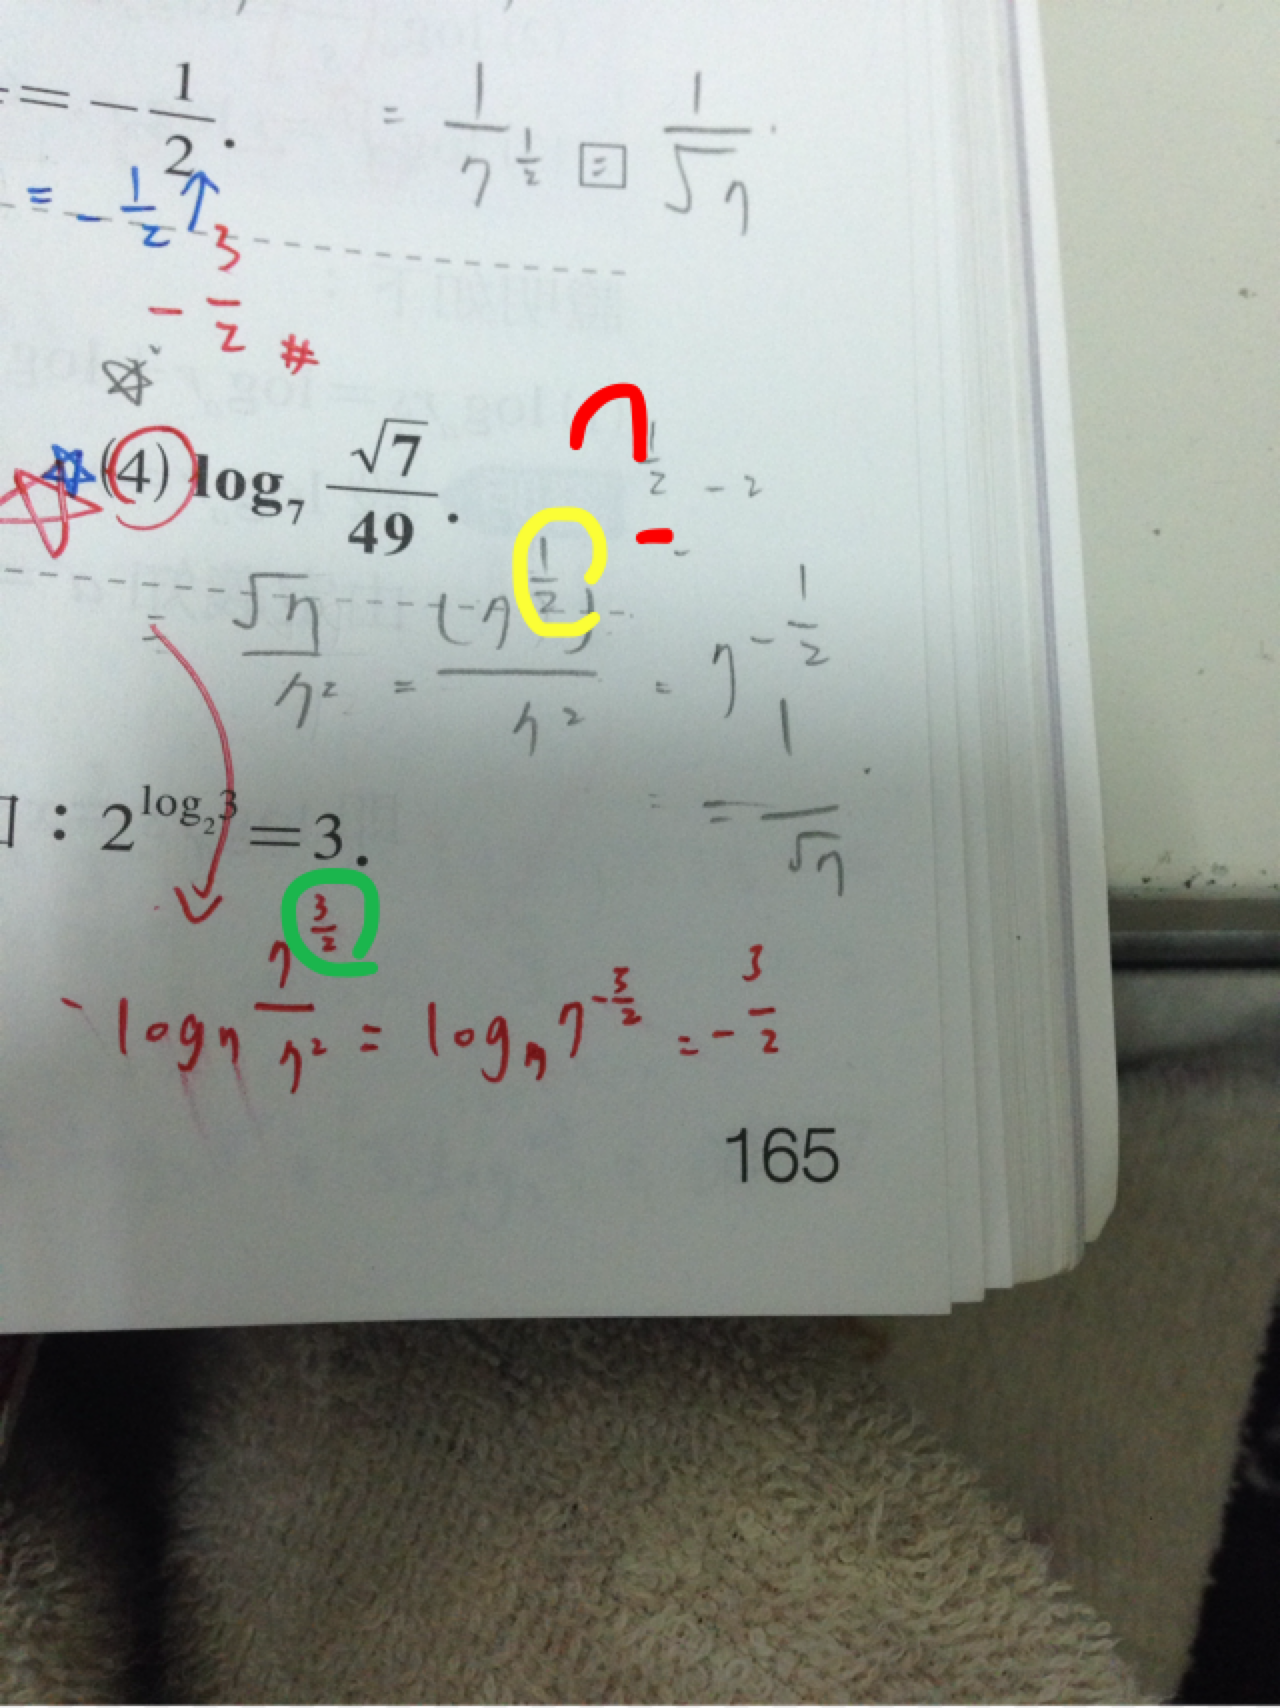 = -1/2. = 1/7^(1/2) = 1/√7
= -1/2 ↑
-3/2 #
(4) log₇ √7/49. 7^(1/2 - 2)
= √7/7² = (7^(1/2))/7² = 7^(-1/2)
= = 1/√7
: 2^(log₂3) = 3.
log₇ 7^(3/2)/7² = log₇ 7^(-3/2) = -3/2
165